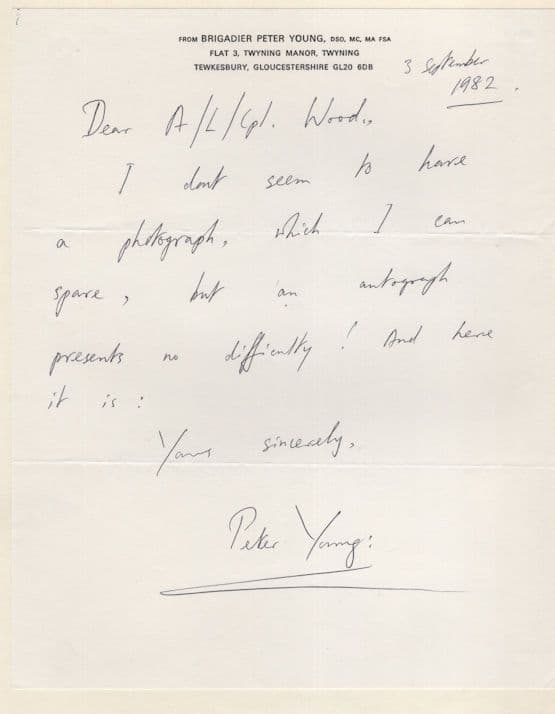 FROM BRIGADIER PETER YOUNG, DSO, MC, MA FSA
FLAT 3, TWYNING MANOR, TWYNING
TEWKESBURY, GLOUCESTERSHIRE GL20 6DB
3 September
1982.
Dear A/L/Cpl. Wood,
I dont seem to have
a photograph, which I can
spare, but an autograph
presents no difficulty! And here
it is:
Yours sincerely,
Peter Young: